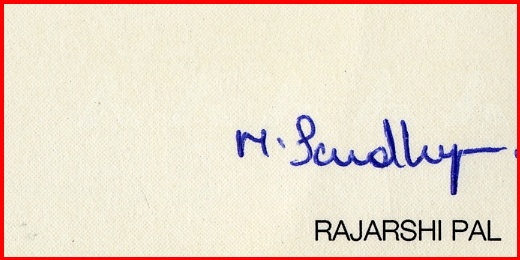 M. Sandhy
RAJARSHI PAL